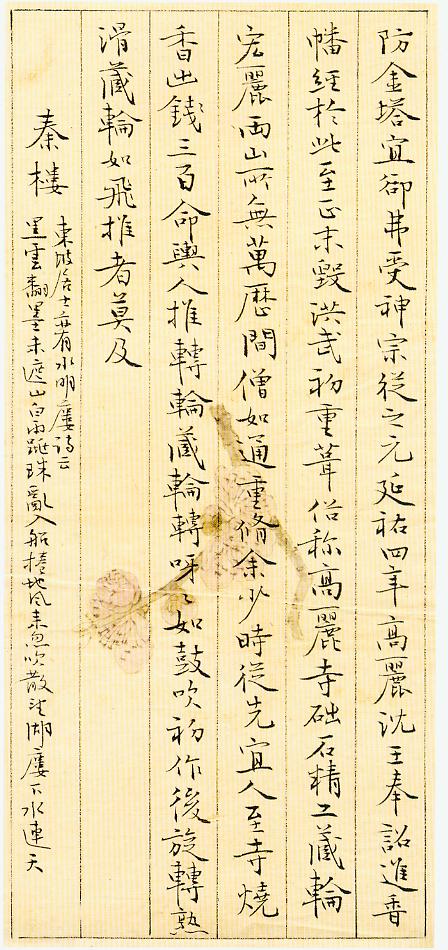 防金塔宜卻弗受神宗從之元延祐四年高麗沈王奉詔進香
幡經於此至正末毀洪武初重葺俗稱高麗寺礎石精工藏輪
宏麗兩山所無萬曆間僧如通重脩余少時從先宜人至寺燒
香出錢三百命輿人推轉輪藏輪轉呀〻如鼓吹初作後旋轉熟
滑藏輪如飛推者莫及
秦樓
東坡居士有水明廔詩云
黑雲翻墨未遮山白雨跳珠亂入船捲地風來忽吹散望湖廔下水連天